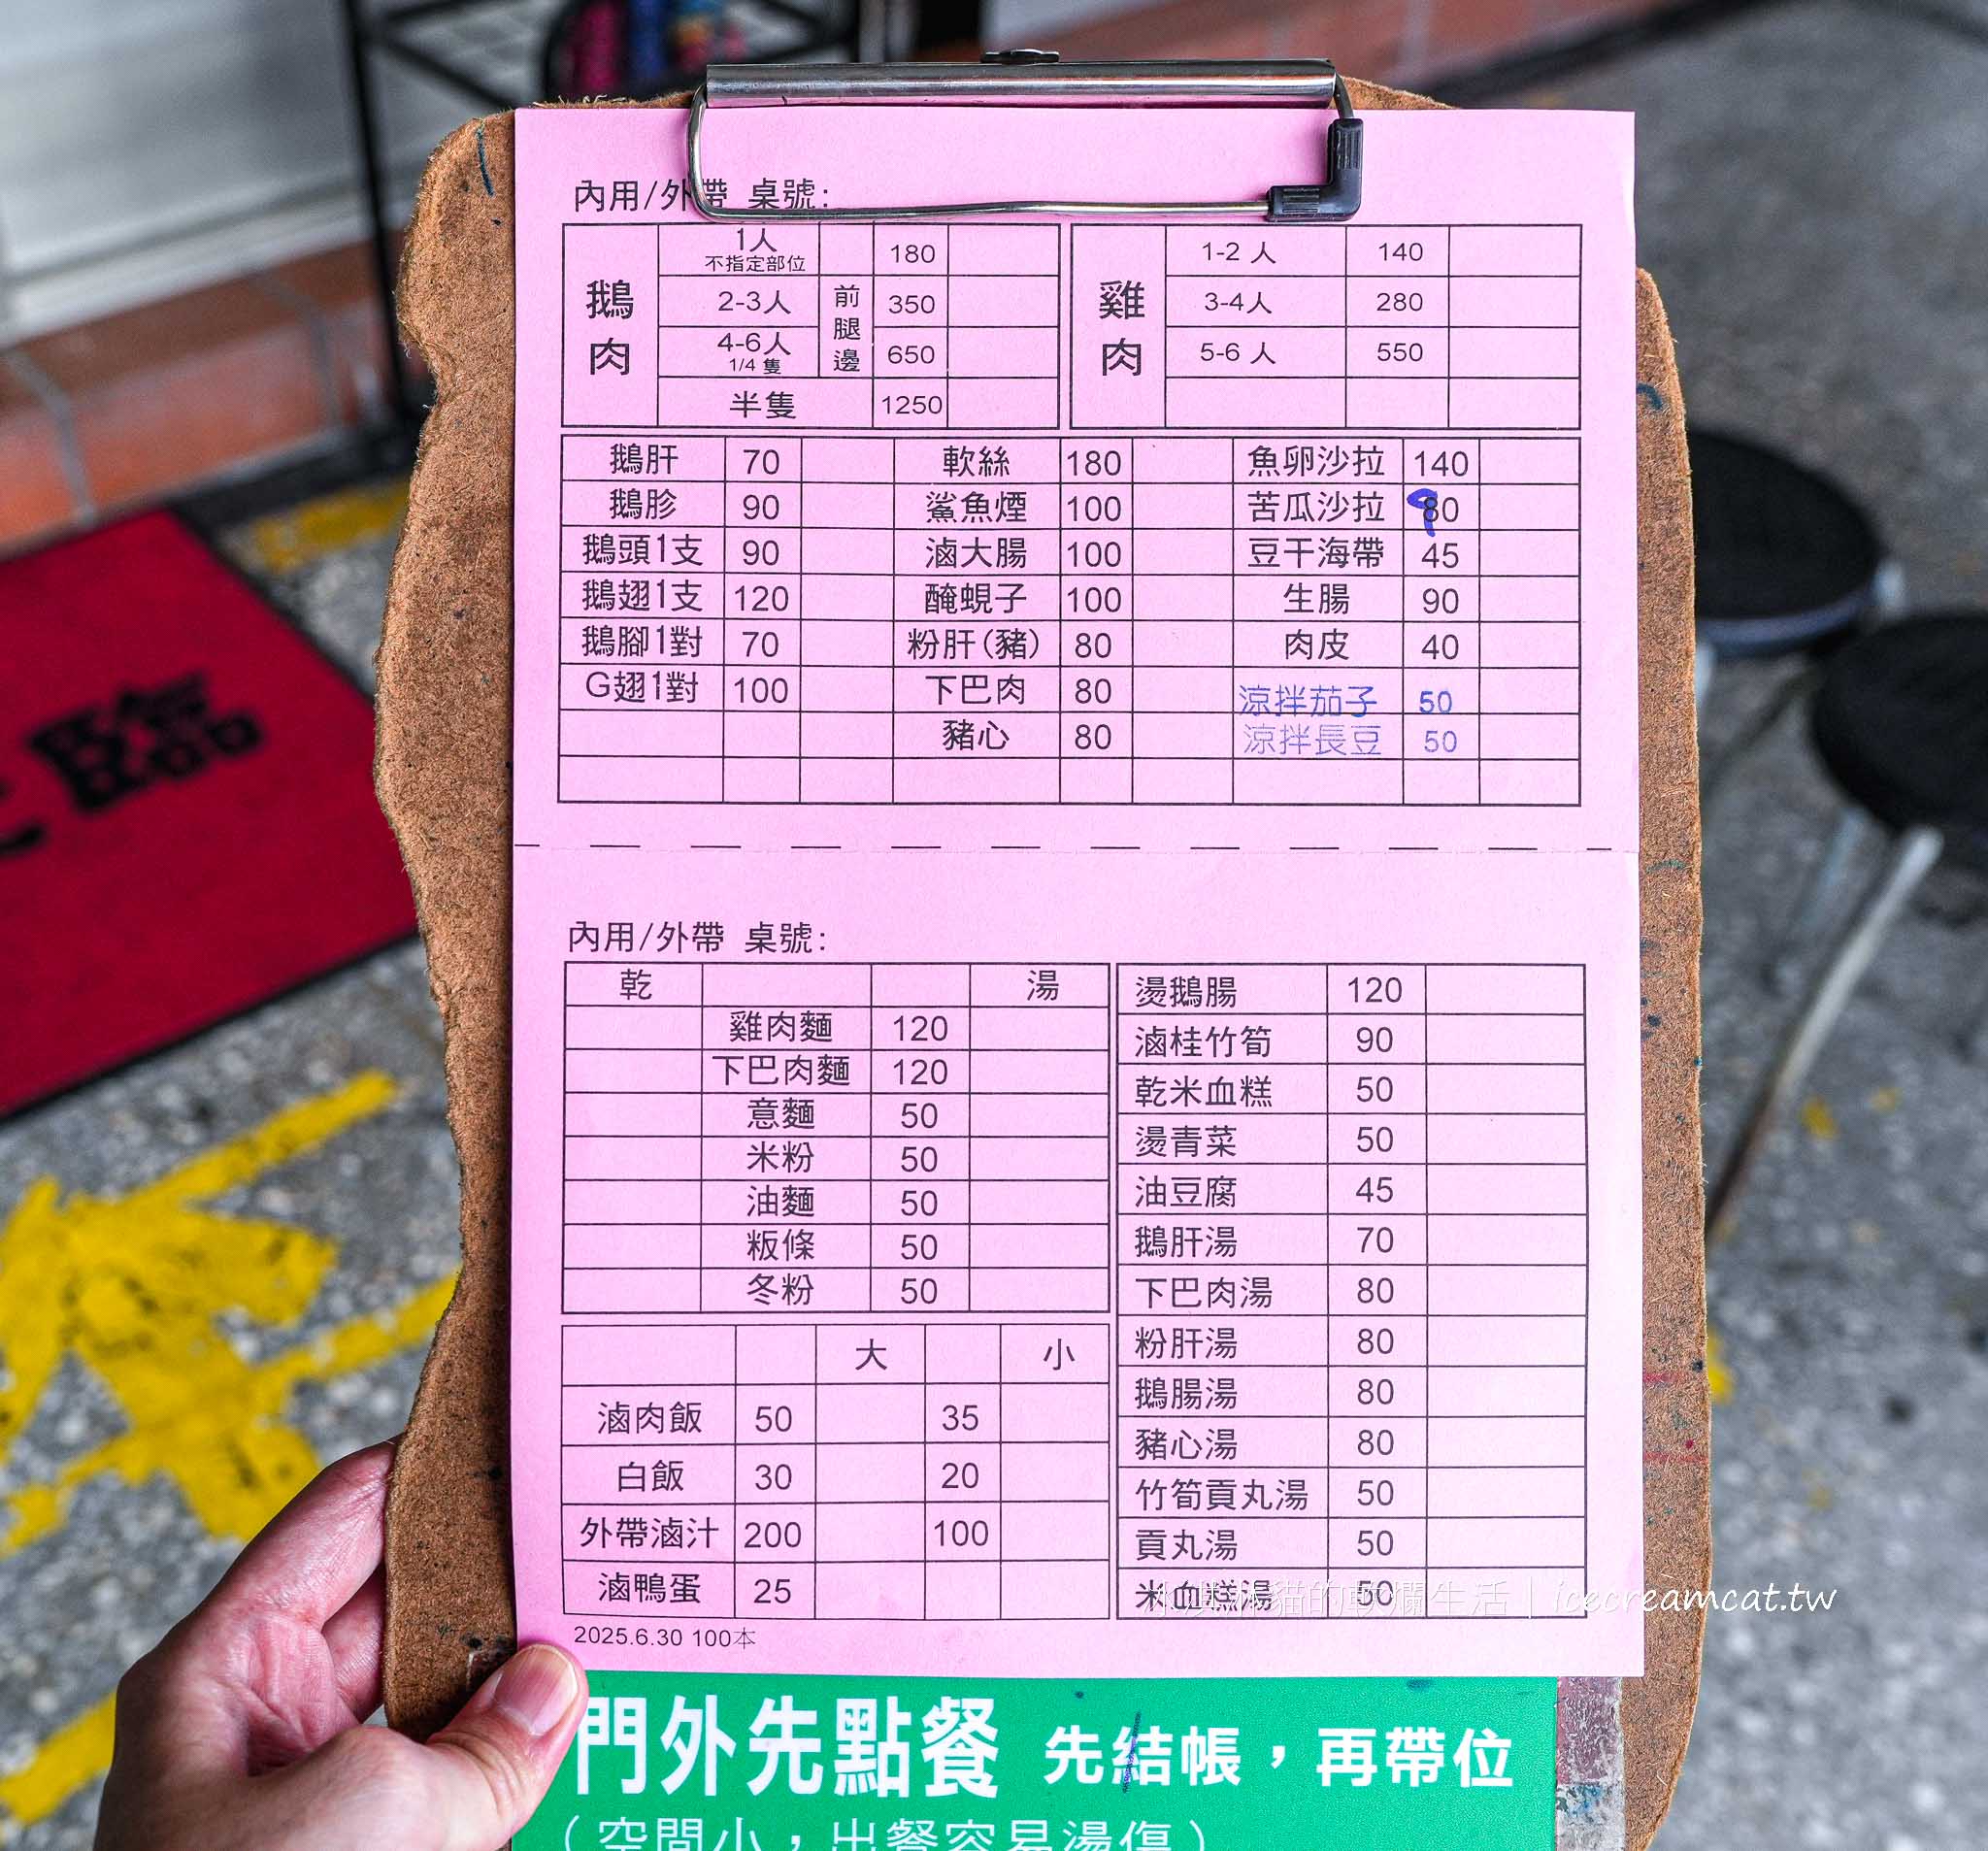 內用/外帶 桌號:
鵝肉 1人 不指定部位 180
2-3人 前腿邊 350
4-6人 1/4 隻 650
半隻 1250
雞肉 1-2 人 140
3-4人 280
5-6 人 550
鵝肝 70 軟絲 180 魚卵沙拉 140
鵝胗 90 鯊魚煙 100 苦瓜沙拉 90
鵝頭1支 90 滷大腸 100 豆干海帶 45
鵝翅1支 120 醃蜆子 100 生腸 90
鵝腳1對 70 粉肝(豬) 80 肉皮 40
G翅1對 100 下巴肉 80 涼拌茄子 50
豬心 80 涼拌長豆 50
內用/外帶 桌號:
乾 湯
雞肉麵 120
下巴肉麵 120
意麵 50
米粉 50
油麵 50
粄條 50
冬粉 50
大 小
滷肉飯 50 35
白飯 30 20
外帶滷汁 200 100
滷鴨蛋 25
燙鵝腸 120
滷桂竹筍 90
乾米血糕 50
燙青菜 50
油豆腐 45
鵝肝湯 70
下巴肉湯 80
粉肝湯 80
鵝腸湯 80
豬心湯 80
竹筍貢丸湯 50
貢丸湯 50
米血糕湯 50
冰淇淋貓的軟爛生活 | icecreamcat.tw
2025.6.30 100本
門外先點餐 先結帳，再帶位
(空間小，出餐容易湯傷)